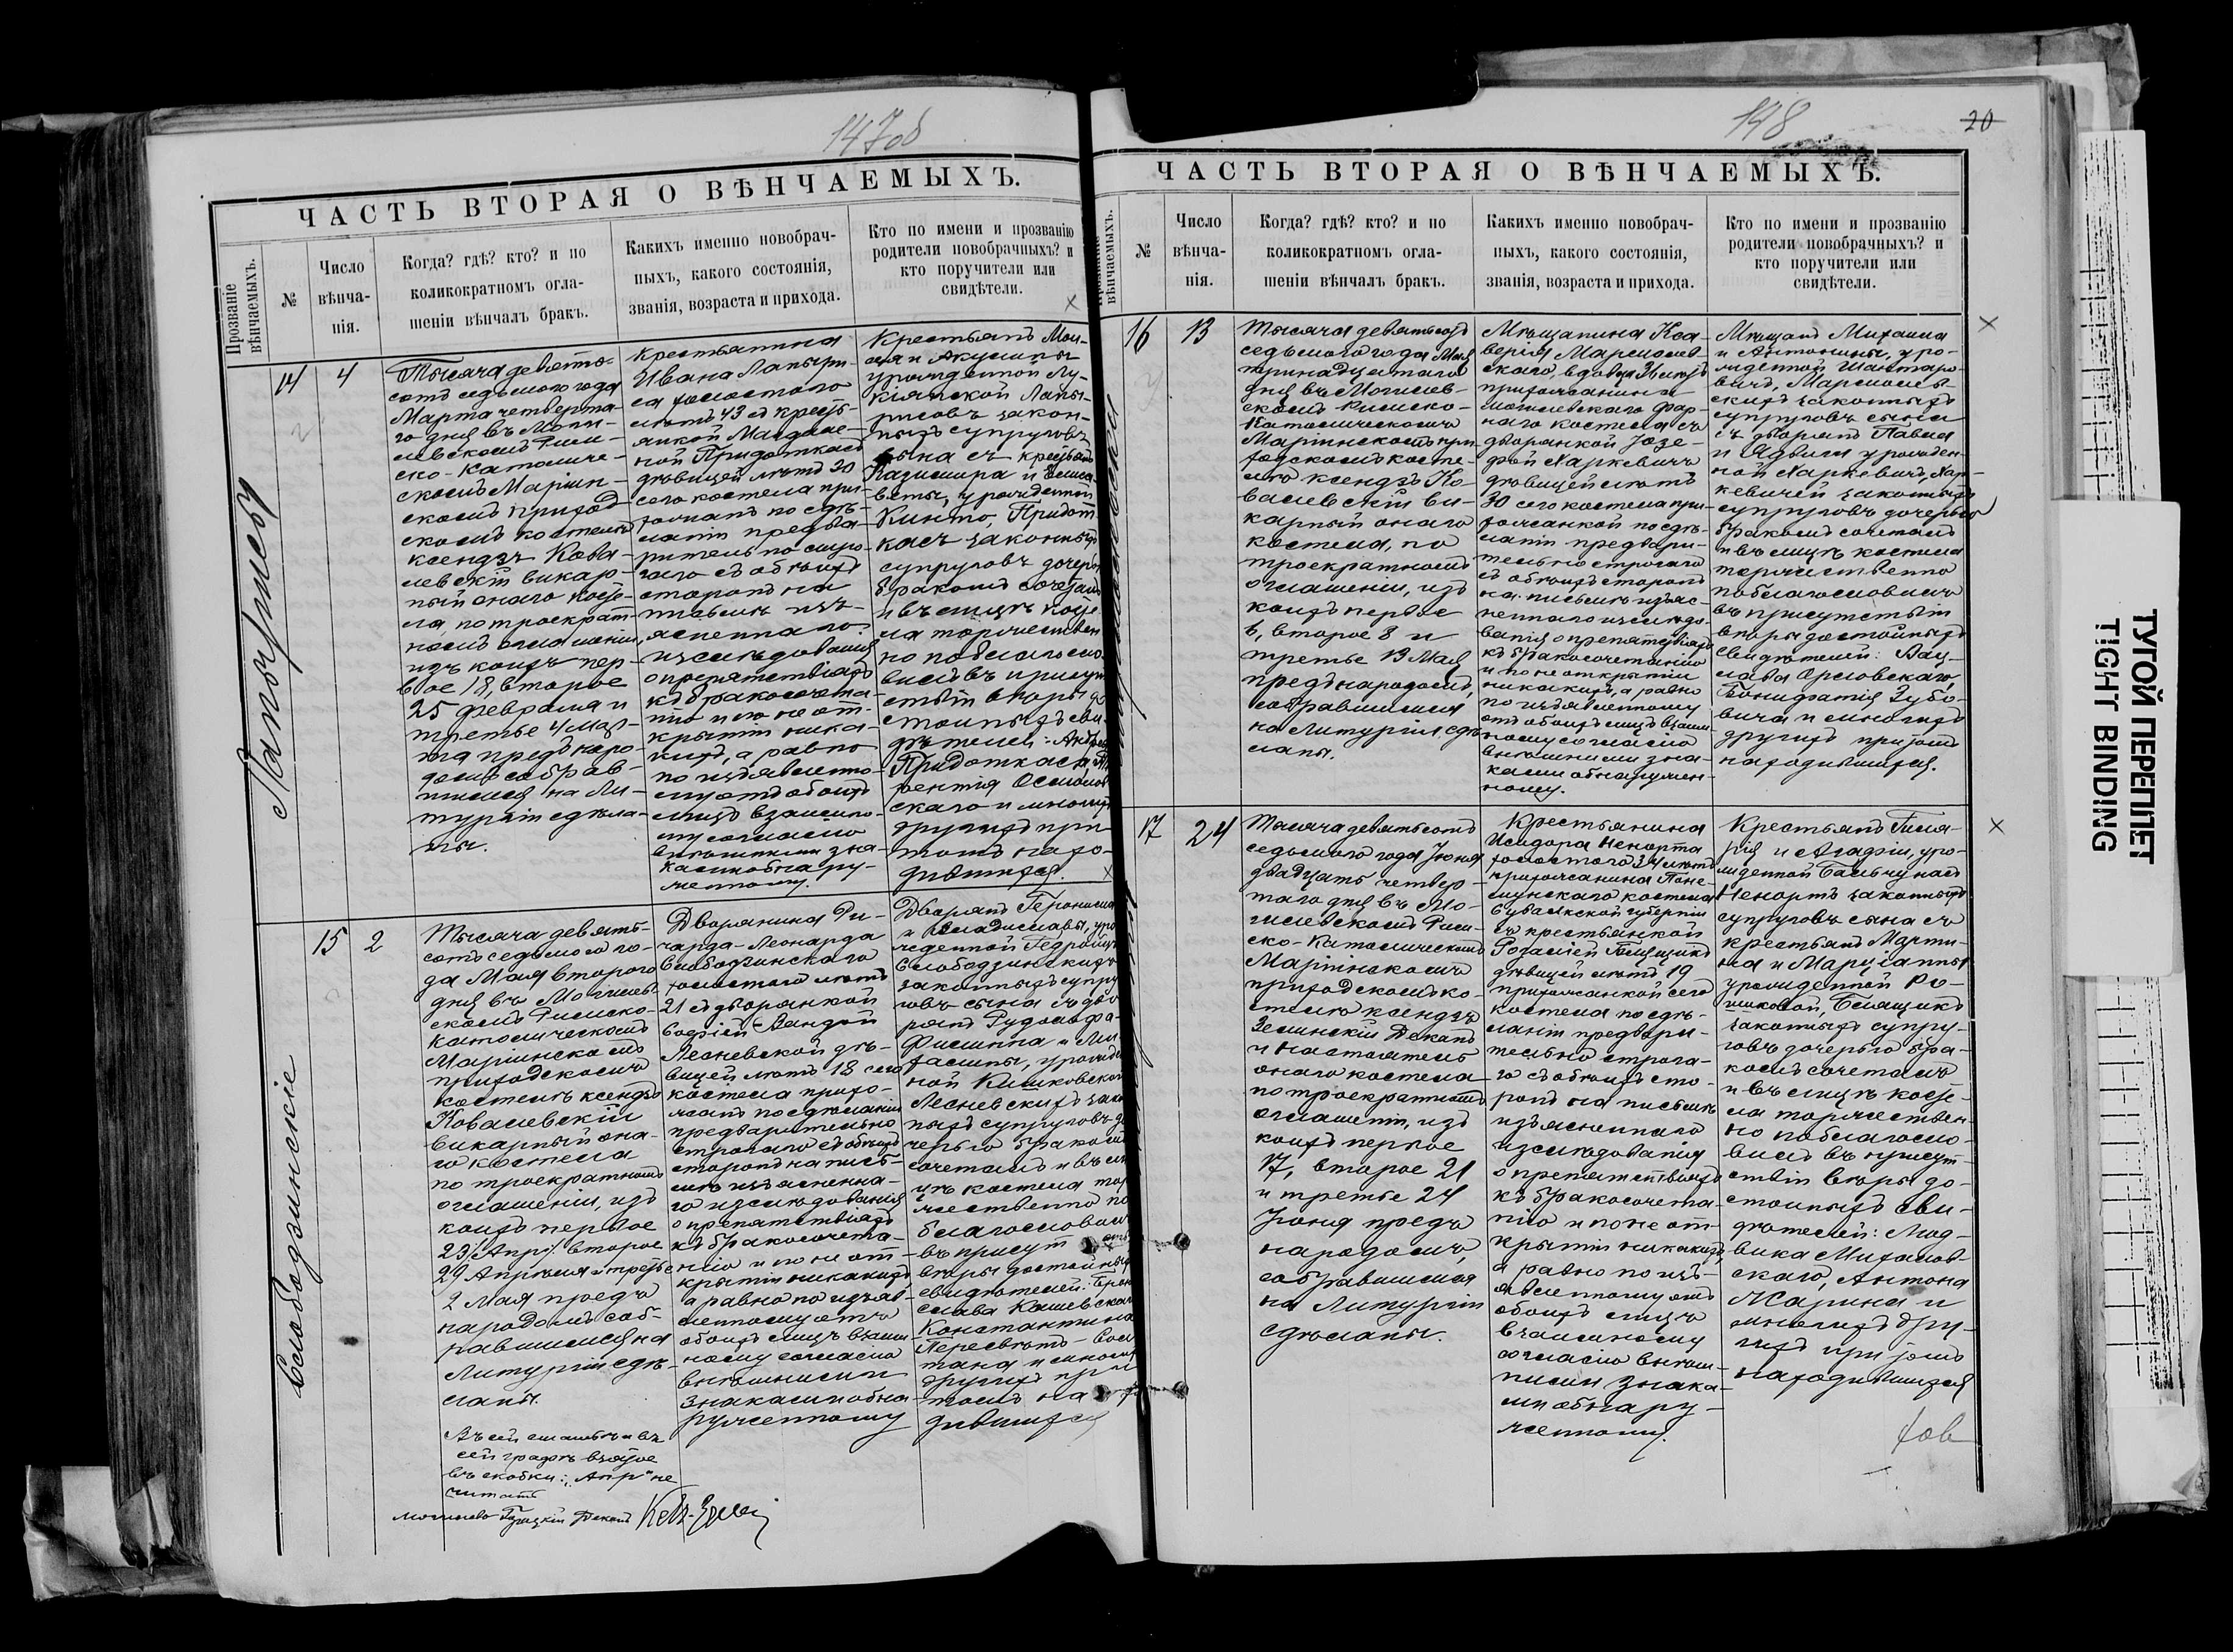 147об
ЧАСТЬ ВТОРАЯ О ВѢНЧАЕМЫХЪ.
Прозваніе
вѣнчаемыхъ.
№
Число
вѣнча-
нія.
Когда? гдѣ? кто? и по
коликократномъ огла-
шеніи вѣнчалъ бракъ.
Какихъ именно новобрач-
ныхъ, какого состоянія,
званія, возраста и прихода.
Кто по имени и прозванію
родители новобрачныхъ? и
кто поручители или
свидѣтели.
14
4
Тысяча девять-
сотъ седьмого года
Марта четверта-
го дня въ Моги-
левскомъ Рим-
ско-Католиче-
скомъ Маріин-
скомъ приход-
скомъ костелѣ
ксендзъ Кова-
левскій викар-
ный онаго косте-
ла, по троекрат-
номъ оглашеніи,
изъ коихъ пер-
вое 18, второе
25 февраля и
третье 4 мар-
та предъ наро-
домъ собрав-
шимся на Ли-
тургіи сдѣла-
ны.
Крестьянина
Ивана Лапыри-
са холостого
лѣтъ 43 съ кресть-
янкой Магдале-
ной Придоткасъ
дѣвицей лѣтъ 20
сего костела при-
хожанъ по сдѣ-
ланіи предва-
рительно стро-
гаго съ обѣихъ
сторонъ на
письмѣ изъ-
ясненнаго
изслѣдованія
о препятствіяхъ
къ бракосочета-
нію и по не от-
крытіи ника-
кихъ, а равно
по изъявленно-
му отъ обоихъ
лицъ взаимно-
му согласію
внѣшними зна-
ками обнару-
женному.
Крестьянъ Мои-
сея и Акулины
урожденной Лу-
кіянской Лапы-
рисовъ закон-
ныхъ супруговъ
сына съ крестьянъ
Казимира и Елиса-
веты, урожденной
Кинто, Придот-
касъ законныхъ
супруговъ дочерью
бракомъ сочеталъ
и въ лицѣ косте-
ла торжествен-
но благосло-
вилъ въ присут-
ствіи вѣры до-
стойныхъ сви-
дѣтелей: Андрея
Придоткаса,
рентія Осмолов-
скаго и многихъ
другихъ при
томъ нахо-
дившихся.
15
2
Слободзинскіе
Тысяча девять-
сотъ седьмого го-
да Мая второго
дня въ Могилев-
скомъ Римско-
Католическомъ
Маріинскомъ
приходскомъ
костелѣ ксендзъ
Ковалевскій
викарный она-
го костела
по троекратномъ
оглашеніи, изъ
коихъ первое
23 Апр., второе
29 Апрѣля и третье
2 Мая предъ
народомъ соб-
равшимся на
Литургіи сдѣ-
ланы.
Дворянина Ри-
чарда-Леонарда
Слободзинскаго
холостого лѣтъ
21 съ дворянкой
Софіей-Вандой
Лесневской дѣ-
вицей лѣтъ 18 сего
костела прихо-
жанъ по сдѣланіи
предварительно
строгаго съ обѣихъ
сторонъ на пись-
мѣ изъясненна-
го изслѣдованія
о препятствіяхъ
къ бракосочета-
нію и по не от-
крытіи никакихъ
а равно по изъяв-
ленному отъ
обоихъ лицъ взаим-
ному согласію
внѣшними
знаками обна-
руженному
Дворянъ Геронима
и Владиславы, уро-
жденной Гедройцъ
Слободзинскихъ
законныхъ супру-
говъ сына съ дво-
рянъ Рудольфа-
Филиппа и Ми-
халины, урожден-
ной Климковской
Лесневскихъ зако-
ныхъ супруговъ до-
черью бракомъ
сочеталъ и въ ли-
цѣ костела тор-
жественно по-
благословилъ
въ присут-
вѣры достойныхъ
свидѣтелей: Брони-
слава Кашевскаго
Константина
Пересвѣтъ-Солт
тана и многихъ
другихъ при
томъ нахо-
дившихся
Въ сей статьѣ и въ
сей графѣ взятое
въ скобки: „Апр“ не
читать
Могилево-Градскій Деканъ
198
20
ЧАСТЬ ВТОРАЯ О ВѢНЧАЕМЫХЪ.
вѣнчаемыхъ.
№
Число
вѣнча-
нія.
Когда? гдѣ? кто? и по
коликократномъ огла-
шеніи вѣнчалъ бракъ.
Какихъ именно новобрач-
ныхъ, какого состоянія,
званія, возраста и прихода.
Кто по имени и прозванію
родители новобрачныхъ? и
кто поручители или
свидѣтели.
16
13
Тысяча девятьсотъ
седьмого года Мая
тринадцатаго
дня въ Могилев-
скомъ Римско-
Католическомъ
Маріинскомъ при-
ходскомъ косте-
лѣ ксендзъ Ко-
валевскій ви-
карный онаго
костела, по
троекратномъ
оглашеніи, изъ
коихъ первое
6, второе 8 и
третье 13 Мая
предъ народомъ,
собравшимся
на Литургіи сдѣ-
ланы.
Мѣщанина Кса-
верія Марцолев-
скаго, вдовца лѣтъ
прихожанина
могилевскаго фар-
наго костела съ
дворянкой Юзе-
фой Харкевичъ
дѣвицей лѣтъ
30 сего костела при-
хожанкой по сдѣ-
ланіи предвари-
тельно строгаго
съ обѣихъ сторонъ
на письмѣ изъяс-
неннаго изслѣдо-
ванія о препятствіяхъ
къ бракосочетанію
и по не открытіи
никакихъ, а равно
по изъявленному
отъ обоихъ лицъ взаим-
ному согласію
внѣшними зна-
ками обнаружен-
ному.
Мѣщанъ Михаила
и Антонины, уро-
жденной Шантаро-
вичъ, Марцолев-
скихъ законныхъ
супруговъ сына
съ дворянъ Павла
и Ядвиги урожден-
ной Харкевичъ, Хар-
кевичей законныхъ
супруговъ дочерью
бракомъ сочеталъ
и въ лицѣ костела
торжественно
поблагословилъ
въ присутствіи
вѣры достойныхъ
свидѣтелей: Вац-
лава Орловскаго,
Бонифатія Зубо-
вича и многихъ
другихъ при томъ
находившихся.
17
24
Тысяча девятьсотъ
седьмого года Іюня
двадцать четвер-
таго дня въ Мо-
гилевскомъ Рим-
ско-Католическомъ
Маріинскомъ
приходскомъ ко-
стелѣ ксендзъ
Зелинскій Деканъ
и настоятель
онаго костела
по троекратномъ
оглашеніи, изъ
коихъ первое
17, второе 21
и третье 24
Іюня предъ
народомъ,
собравшимся
на Литургіи
сдѣланы.
Крестьянина
Исидора Ненорта
холостого 34 лѣтъ
прихожанина Поне-
мунскаго костела
Сувалкской губерніи
съ крестьянкой
Розаліей Блащикъ
дѣвицей лѣтъ 19
прихожанкой сего
костела по сдѣ-
ланіи предвари-
тельно строга-
го съ обѣихъ сто-
ронъ на письмѣ
изъясненнаго
изслѣдованія
о препятствіяхъ
къ бракосочета-
нію и по не от-
крытіи никакихъ,
а равно по изъ-
явленному отъ
обоихъ лицъ
взаимному
согласію внѣш-
ними знака-
ми обнару-
женному.
Крестьянъ Гила-
рія и Агафіи, уро-
жденной Бальчунасъ
Ненортъ законныхъ
супруговъ сына съ
крестьянъ Марти-
на и Маріанны
урожденной Ро-
Блащикъ
законныхъ супру-
говъ дочерью бра-
комъ сочеталъ
и въ лицѣ косте-
ла торжествен-
но поблагосло-
вилъ въ присут-
ствіи вѣры до-
стойныхъ сви-
дѣтелей: Люд-
вика Михалов-
скаго, Антона
Жарина и
многихъ дру-
гихъ при томъ
находившихся
ТУГОЙ ПЕРЕПЛЕТ
TIGHT BINDING